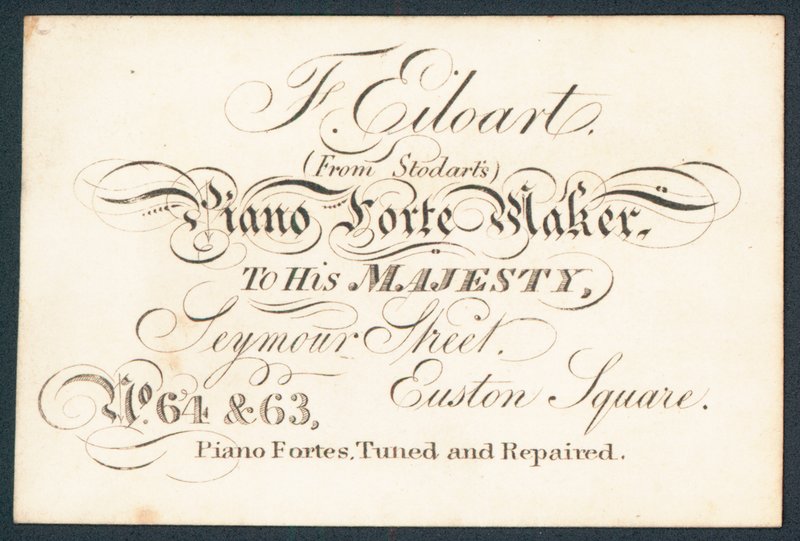 F. Eiloart.
(From Stodart's)
Piano Forte Maker.
To His MAJESTY,
Seymour Street.
Euston Square.
No. 64 & 63,
Piano Fortes, Tuned and Repaired.